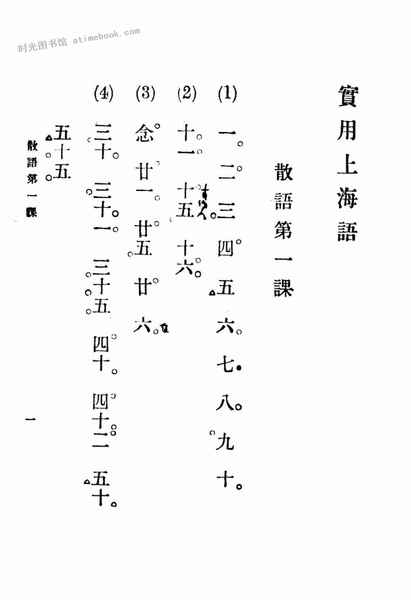 时光图书馆 atimebook.com
實用上海語
散語第一課
(1) 一 二 三 四 五 六 七 八 九 十
(2) 十一 十五 十六
(3) 念 廿一 廿五 廿六
(4) 三十 三十一 三十五 四十 四十二 五十
五十五
散語第一課
一